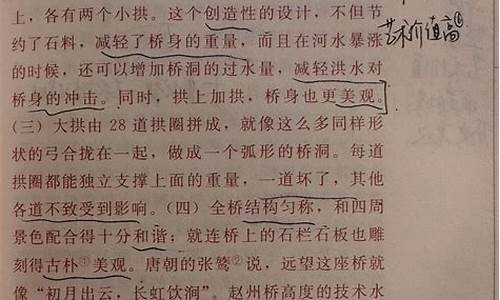 上，各有两个小拱。这个创造性的设计，不但节
约了石料，减轻了桥身的重量，而且在河水暴涨
的时候，还可以增加桥洞的过水量，减轻洪水对
桥身的冲击。同时，拱上加拱，桥身也更美观。
(三) 大拱由 28 道拱圈拼成，就像这么多同样形
状的弓合拢在一起，做成一个弧形的桥洞。每道
拱圈都能独立支撑上面的重量，一道坏了，其他
各道不致受到影响。(四) 全桥结构匀称，和四周
景色配合得十分和谐；就连桥上的石栏石板也雕
刻得古朴①美观。唐朝的张鷟②说，远望这座桥就
像“初月出云，长虹饮涧”。赵州桥高度的技术水
艺术价值高